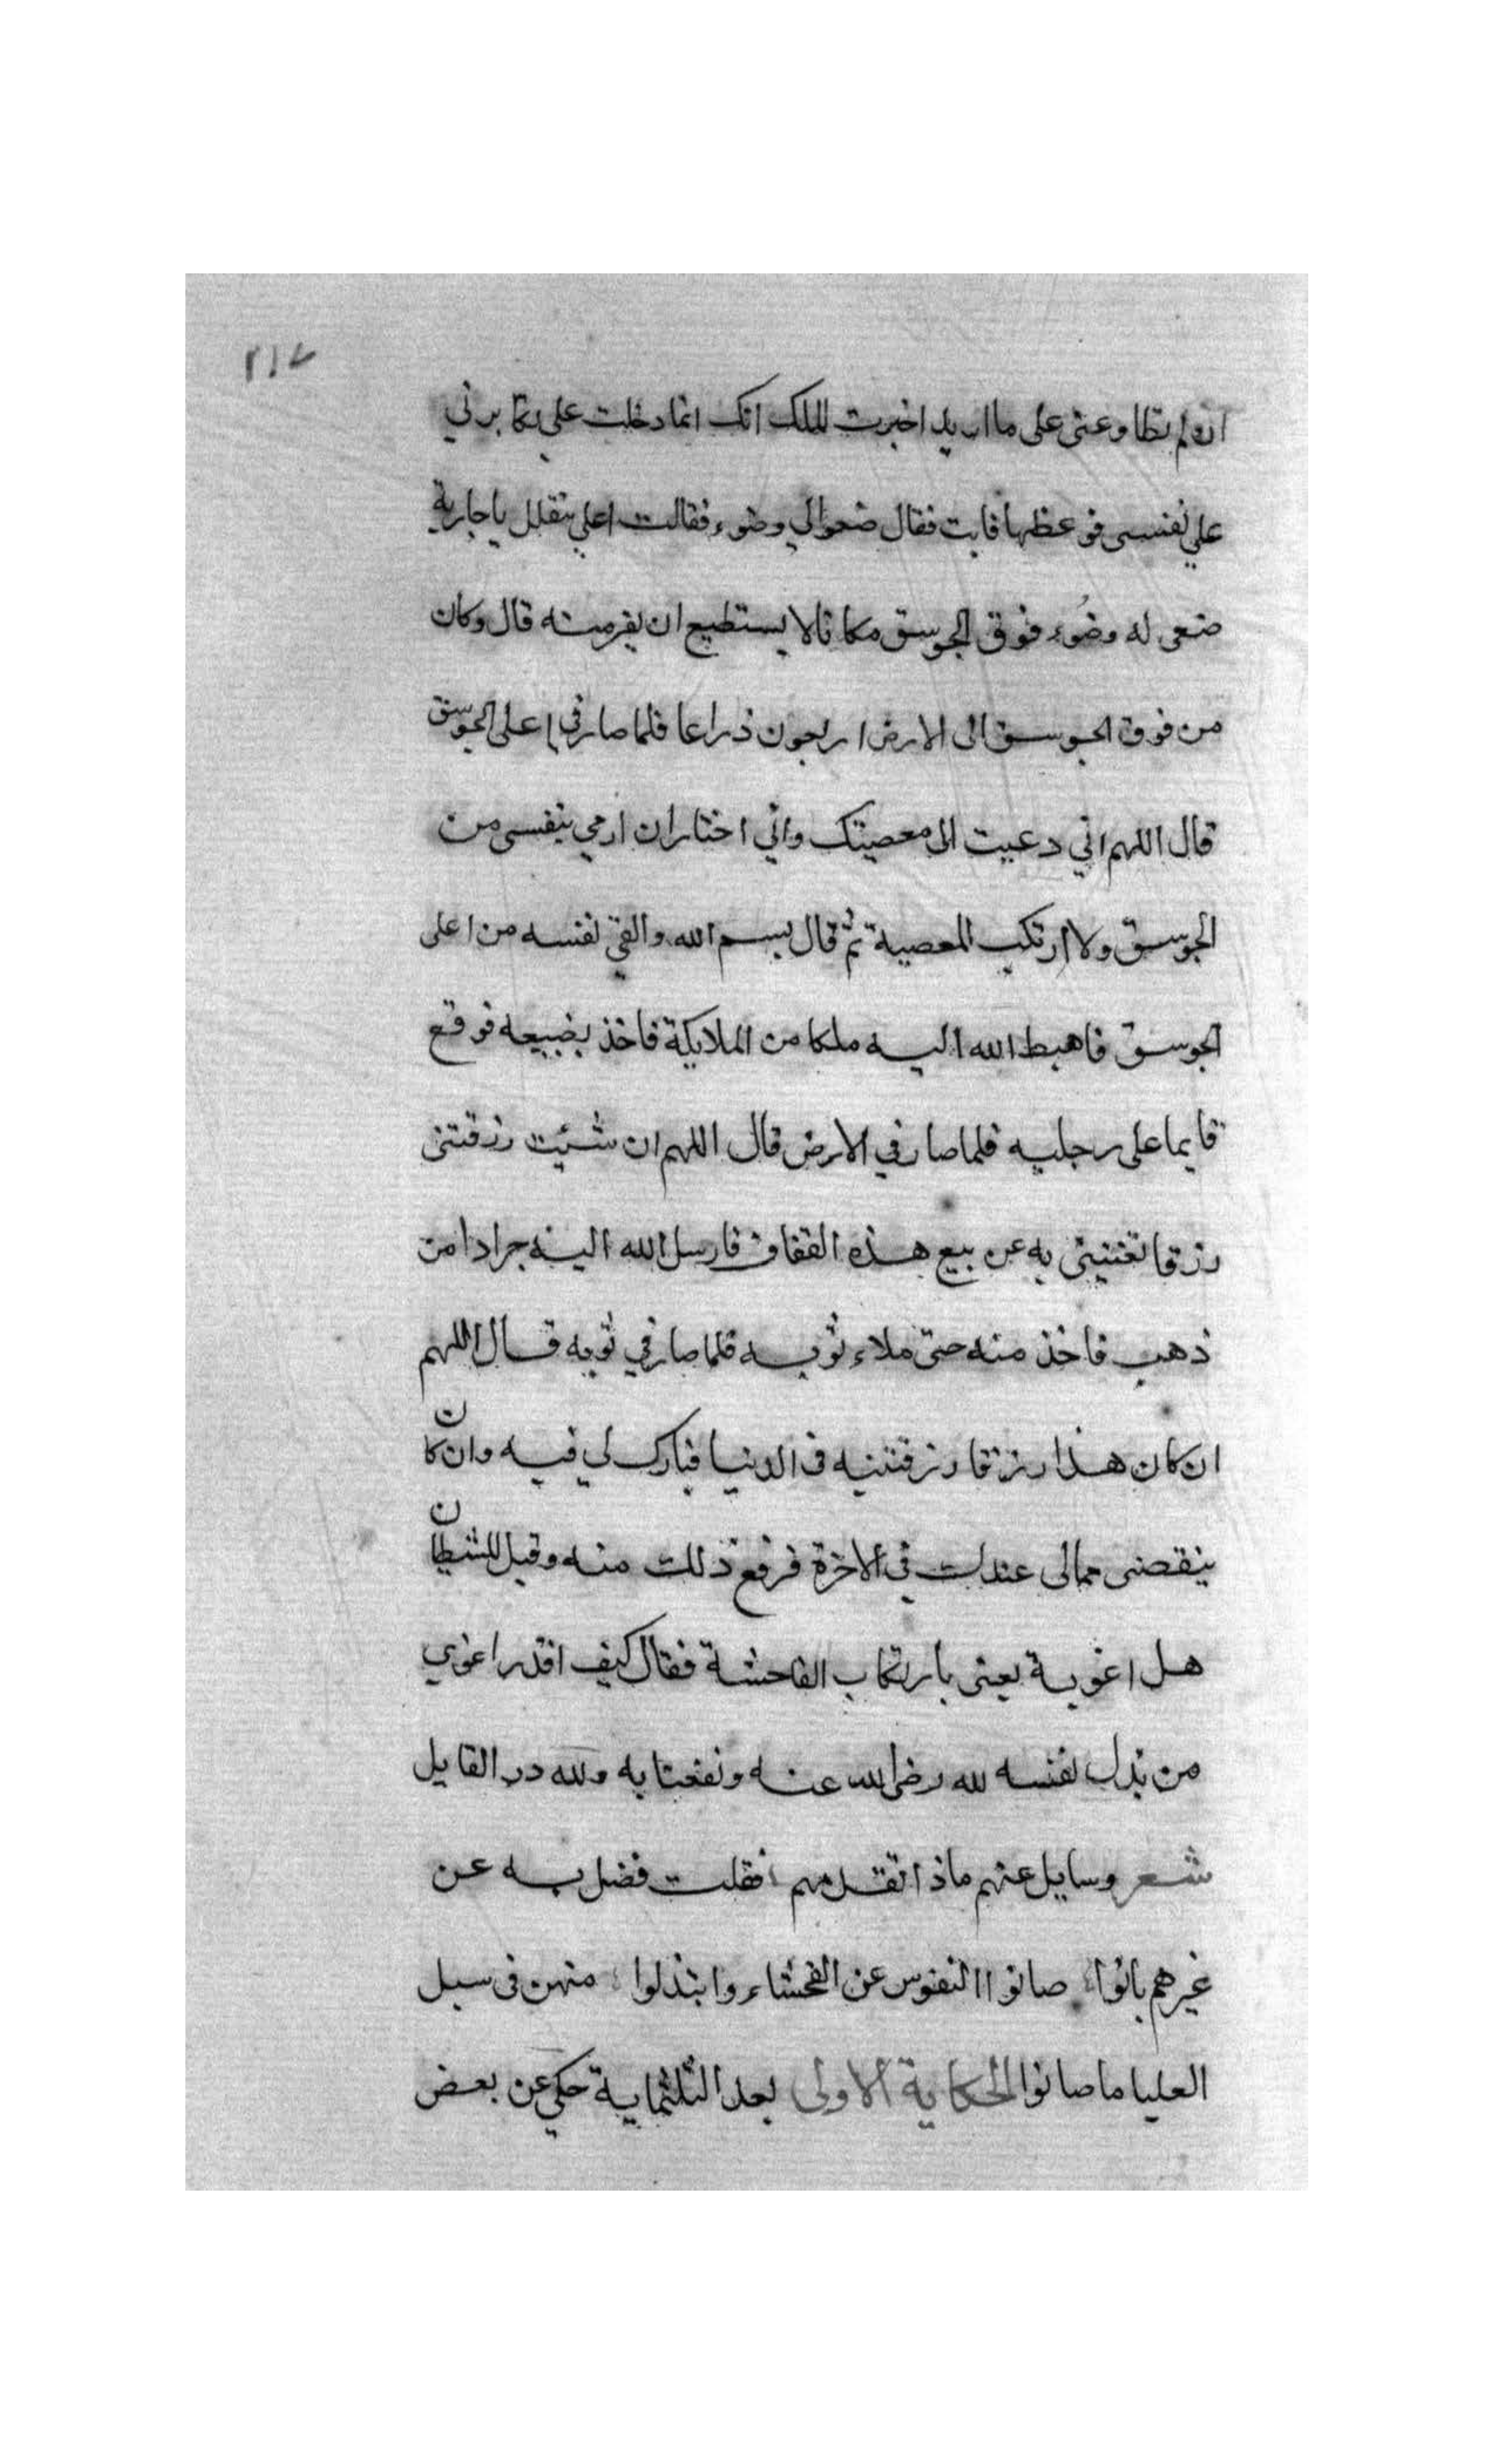 ٢١٧
ان لم تطاوعني على ما اريد اخبرت الملك انك انما دخلت علي تكابرني
علي نفسي فوعظها فابت فقال ضعوا لي وضوء فقالت اعلي تتقلل يا جارية
ضعى له وضُوء فوق الجوسق مكانا لا يستطيع ان يفر منه قال وكان
من فوق الجوسق الى الارض اربعون ذراعا فلما صار في اعلى الجوسق
قال اللهم اني دعيت الى معصيتك واني اختار ان ارمي بنفسى من
الجوسق ولا ارتكب المعصية ثم قال بسم الله والقي نفسه من اعلى
الجوسق فاهبط الله اليه ملكا من الملايكة فاخذ بضبيعه فوقع
قايما على رجليه فلما صار في الارض قال اللهم ان شئيت رزقتنى
رزقا تغنينى به عن بيع هذه القفاف فارسل الله اليه جرادا من
ذهب فاخذ منه حتى ملاء ثوبه فلما صار في ثوبه قال اللهم
ان كان هذا رزقا رزقتنيه فى الدنيا فبارك لي فيه وان كان
ينقصنى مما لى عندك في الاخرة فرفع ذلك منه وقيل للشطان
هل اغوية يعنى بارتكاب الفاحشة فقال كيف اقدر اغوي
من بذل نفسه لله رضى الله عنه ونفعنا به ولله در القايل
شعر وسايل عنهم ماذا تقدمهم فقلت فضل به عن
غيرهم بانوا صانوا النفوس عن الفحشاء وابتذلوا منهن فى سبل
العليا ما صانوا الحكاية الاولى بعد الثلثماية حكي عن بعض